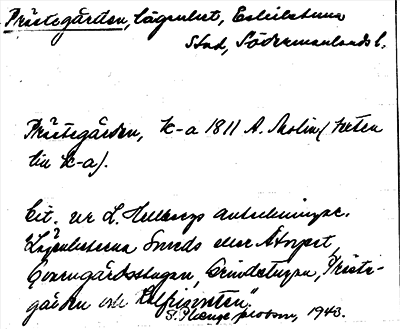 Prästegården, lägenhet, Eskilstuna
Stad, Södermanlands l.
Prästegården, k-a 1811 A. Molin (
lin k-a).
Cit. ur L. Hellbergs anteckningar.
Lägenheterna Smeds eller Åtorpet,
Qvarngårdsstugan, Grindstugan, "Präste-
gården och Kefrisenten".
S. 1943.